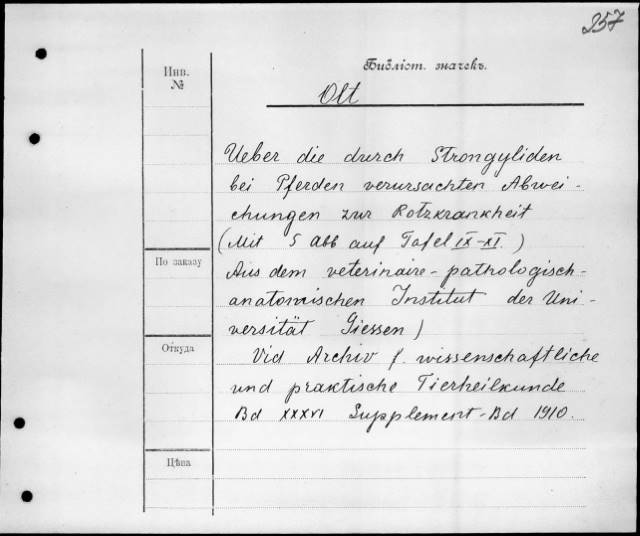 257
Инв.
№
Библіот. значекъ.
Olt
Ueber die durch Strongyliden
bei Pferden verursachten Abwei-
chungen zur Rotzkrankheit
(Mit 5 Abb auf Tafel IX-XI.)
По заказу
Aus dem veterinaire-pathologisch-
anatomischen Institut der Uni-
versität Giessen)
Откуда
Vid Archiv f. wissenschaftliche
und praktische Tierheilkunde
Bd XXXVI Supplement-Bd 1910.
Цѣна